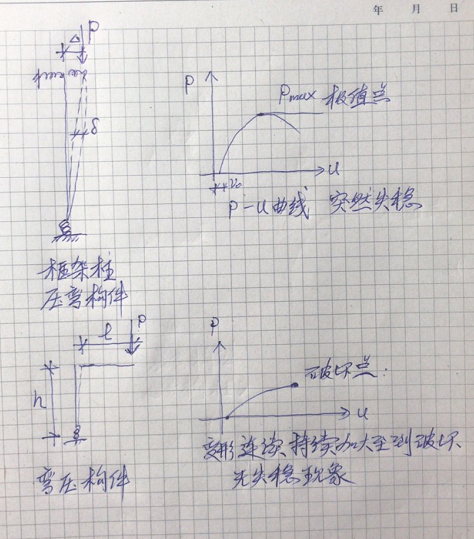 年 月 日
P
Δ
δ
P
Pmax 极值点
u
P-u曲线 突然失稳
框架柱
压弯构件
l
P
h
P
破坏点.
u
变形连续持续加大至到破坏
无失稳现象
弯压构件